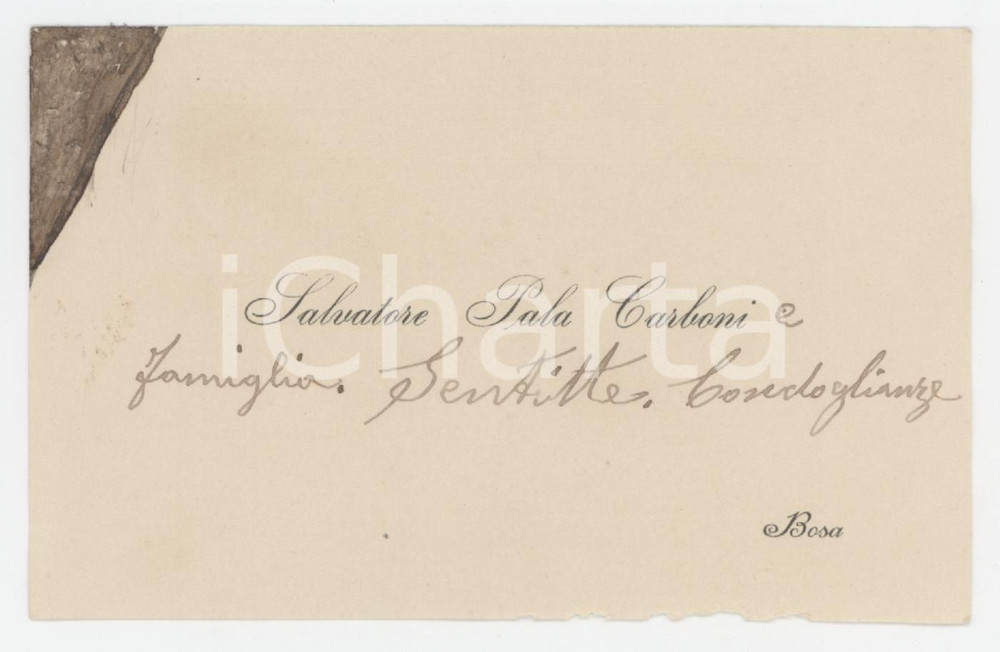 Salvatore Pala Carboni e
famiglia. Sentitte. Condoglianze
Bosa
iCharta